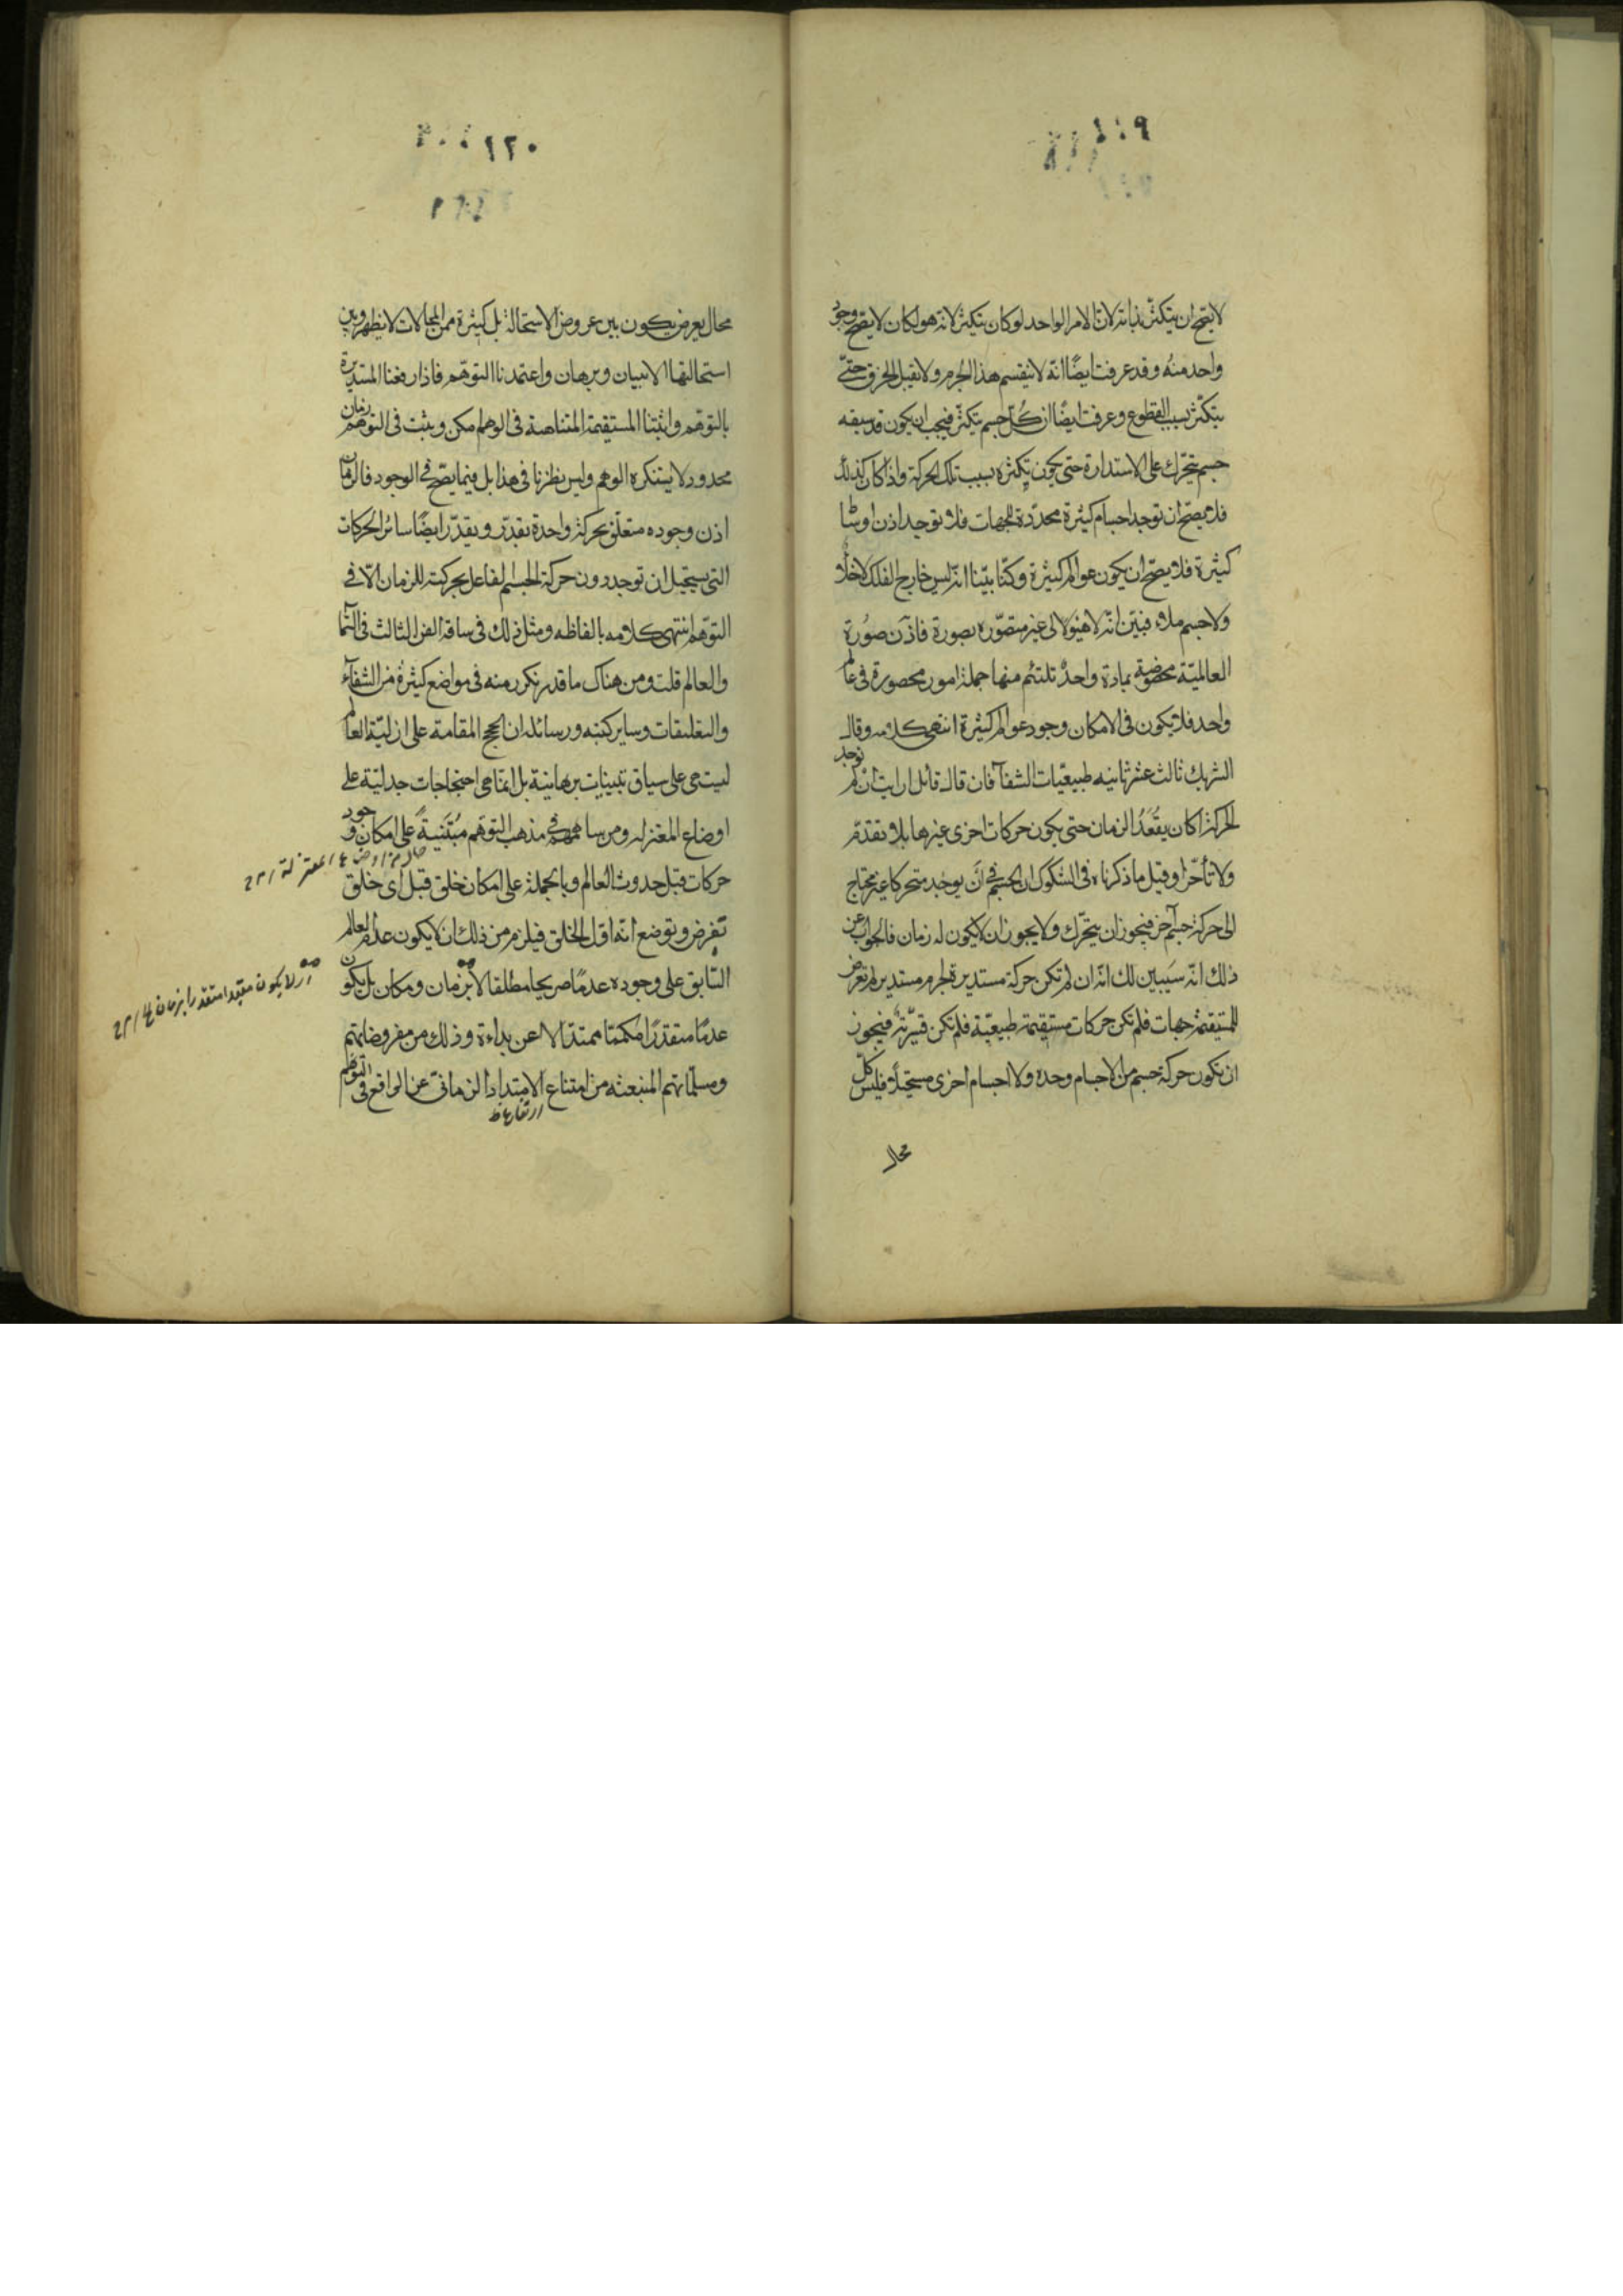 ١١٩
لا يصح ان يتكثر بذاته لان الامر الواحد لو كان يتكثر لانه هو لكان لا يصح وجود
واحد منه وقد عرفت ايضًا انه لا ينقسم هذا الجرم ولا يقبل الخرق حتّى
يتكثر بسبب القطوع وعرفت ايضًا ان كلّ جسم يتكثر فيجب ان يكون قد سبقه
جسم يتحرّك على الاستدارة حتى يكون تكثره بسبب تلك الحركة واذا كان كذلك
فلا يصحّ ان توجد اجسام كثيرة محدّدة للجهات فلا توجد اذن اوساط
كثيرة فلا يصحّ ان يكون عوالم كثيرة وكنّا بيّنا انّه ليس خارج الفلك لا خلأ
ولا جسم ملاء فبيّن انّه لا هيولى غير متصوّره بصورة فاذن صُورة
العالميّة مخصوصة بمادة واحدة تلتئم منها جملة امور محصورة في عالم
واحد فلا يكون في الامكان وجود عوالم كثيرة انتهى كلامه وقال
الشريك ثالث عشر ثانيه طبيعيّات الشفآ فان قال قائل ارايت ان لم توجد
الحركة اكان يفقد الزمان حتى يكون حركات اخرى غيرها بلا تقدّم
ولا تأخّر او قيل ما ذكرناه في الشكوك ان الجسم في ان يوجد متحركا غير محتاج
الى حركة جسم آخر فيجوز ان يتحرّك ولا يجوز ان لا يكون له زمان فالجواب عن
ذلك انّه سَيَبين لك انّه ان لم تكن حركة مستديرة لجرم مستدير لم تعرض
للمستقيمة جهات فلم تكن حركات مستقيمة طبيعيّة فلم تكن قسريّة فيجوز
ان تكون حركة جسم من الاجسام وحده ولا اجسام اخرى مستحيلاً فليس كلّ
محال
١٢٠
محال يعرض يكون بين عروض الاستحالة بل كثيرة من المحالات لا يظهر وبين
استحالتها الا ببيان وبرهان واعتمدنا التوهّم فاذا رفعنا المستديرة
بالتوهّم واثبتنا المستقيمة المتناهية في الوهم امكن ويثبت في التوهّم زمان
محدود لا يستنكره الوهم وليس نظرنا في هذا بل فيما يصحّ في الوجود فالزمان
اذن وجوده متعلّق بحركة واحدة يقدّر ويقدّر ايضًا سائر الحركات
التي يستحيل ان توجد دون حركة الجسم الفاعل بحركته للزمان الّا في
التوهّم انتهى كلامه بالفاظه ومثل ذلك في ساقة الفن الثالث في السّماء
والعالم قلت ومن هناك ما قد تكرر منه في مواضع كثيرة من الشفآء
والتعليقات وساير كتبه ورسائله ان الحجج المقامة على ازليّة العالم
ليست هي على سياق تبيينات برهانية بل انّما هي احتجاجات جدليّة على
اوضاع المعتزله ومن ساهمهم في مذهب التوهّم مُبْتَنيةً على امكان وجود
حركات قبل حدوث العالم وبالجملة على امكان خلق قبل اىّ خلق
تفرض وتوضع انّه اوّل الخلق فيلزم من ذلك ان لا يكون عدم العالم
السّابق على وجوده عدمًا صريحا مطلقا لا بزمان ومكان بل يكون
عدمًا متقدّرًا مكمّما ممتدّا لا عن بداءة وذلك من مفروضاتهم
ومسلّماتهم المنبعثة من امتناع الامتداد الزمانىّ عن الواقع في التوهّم